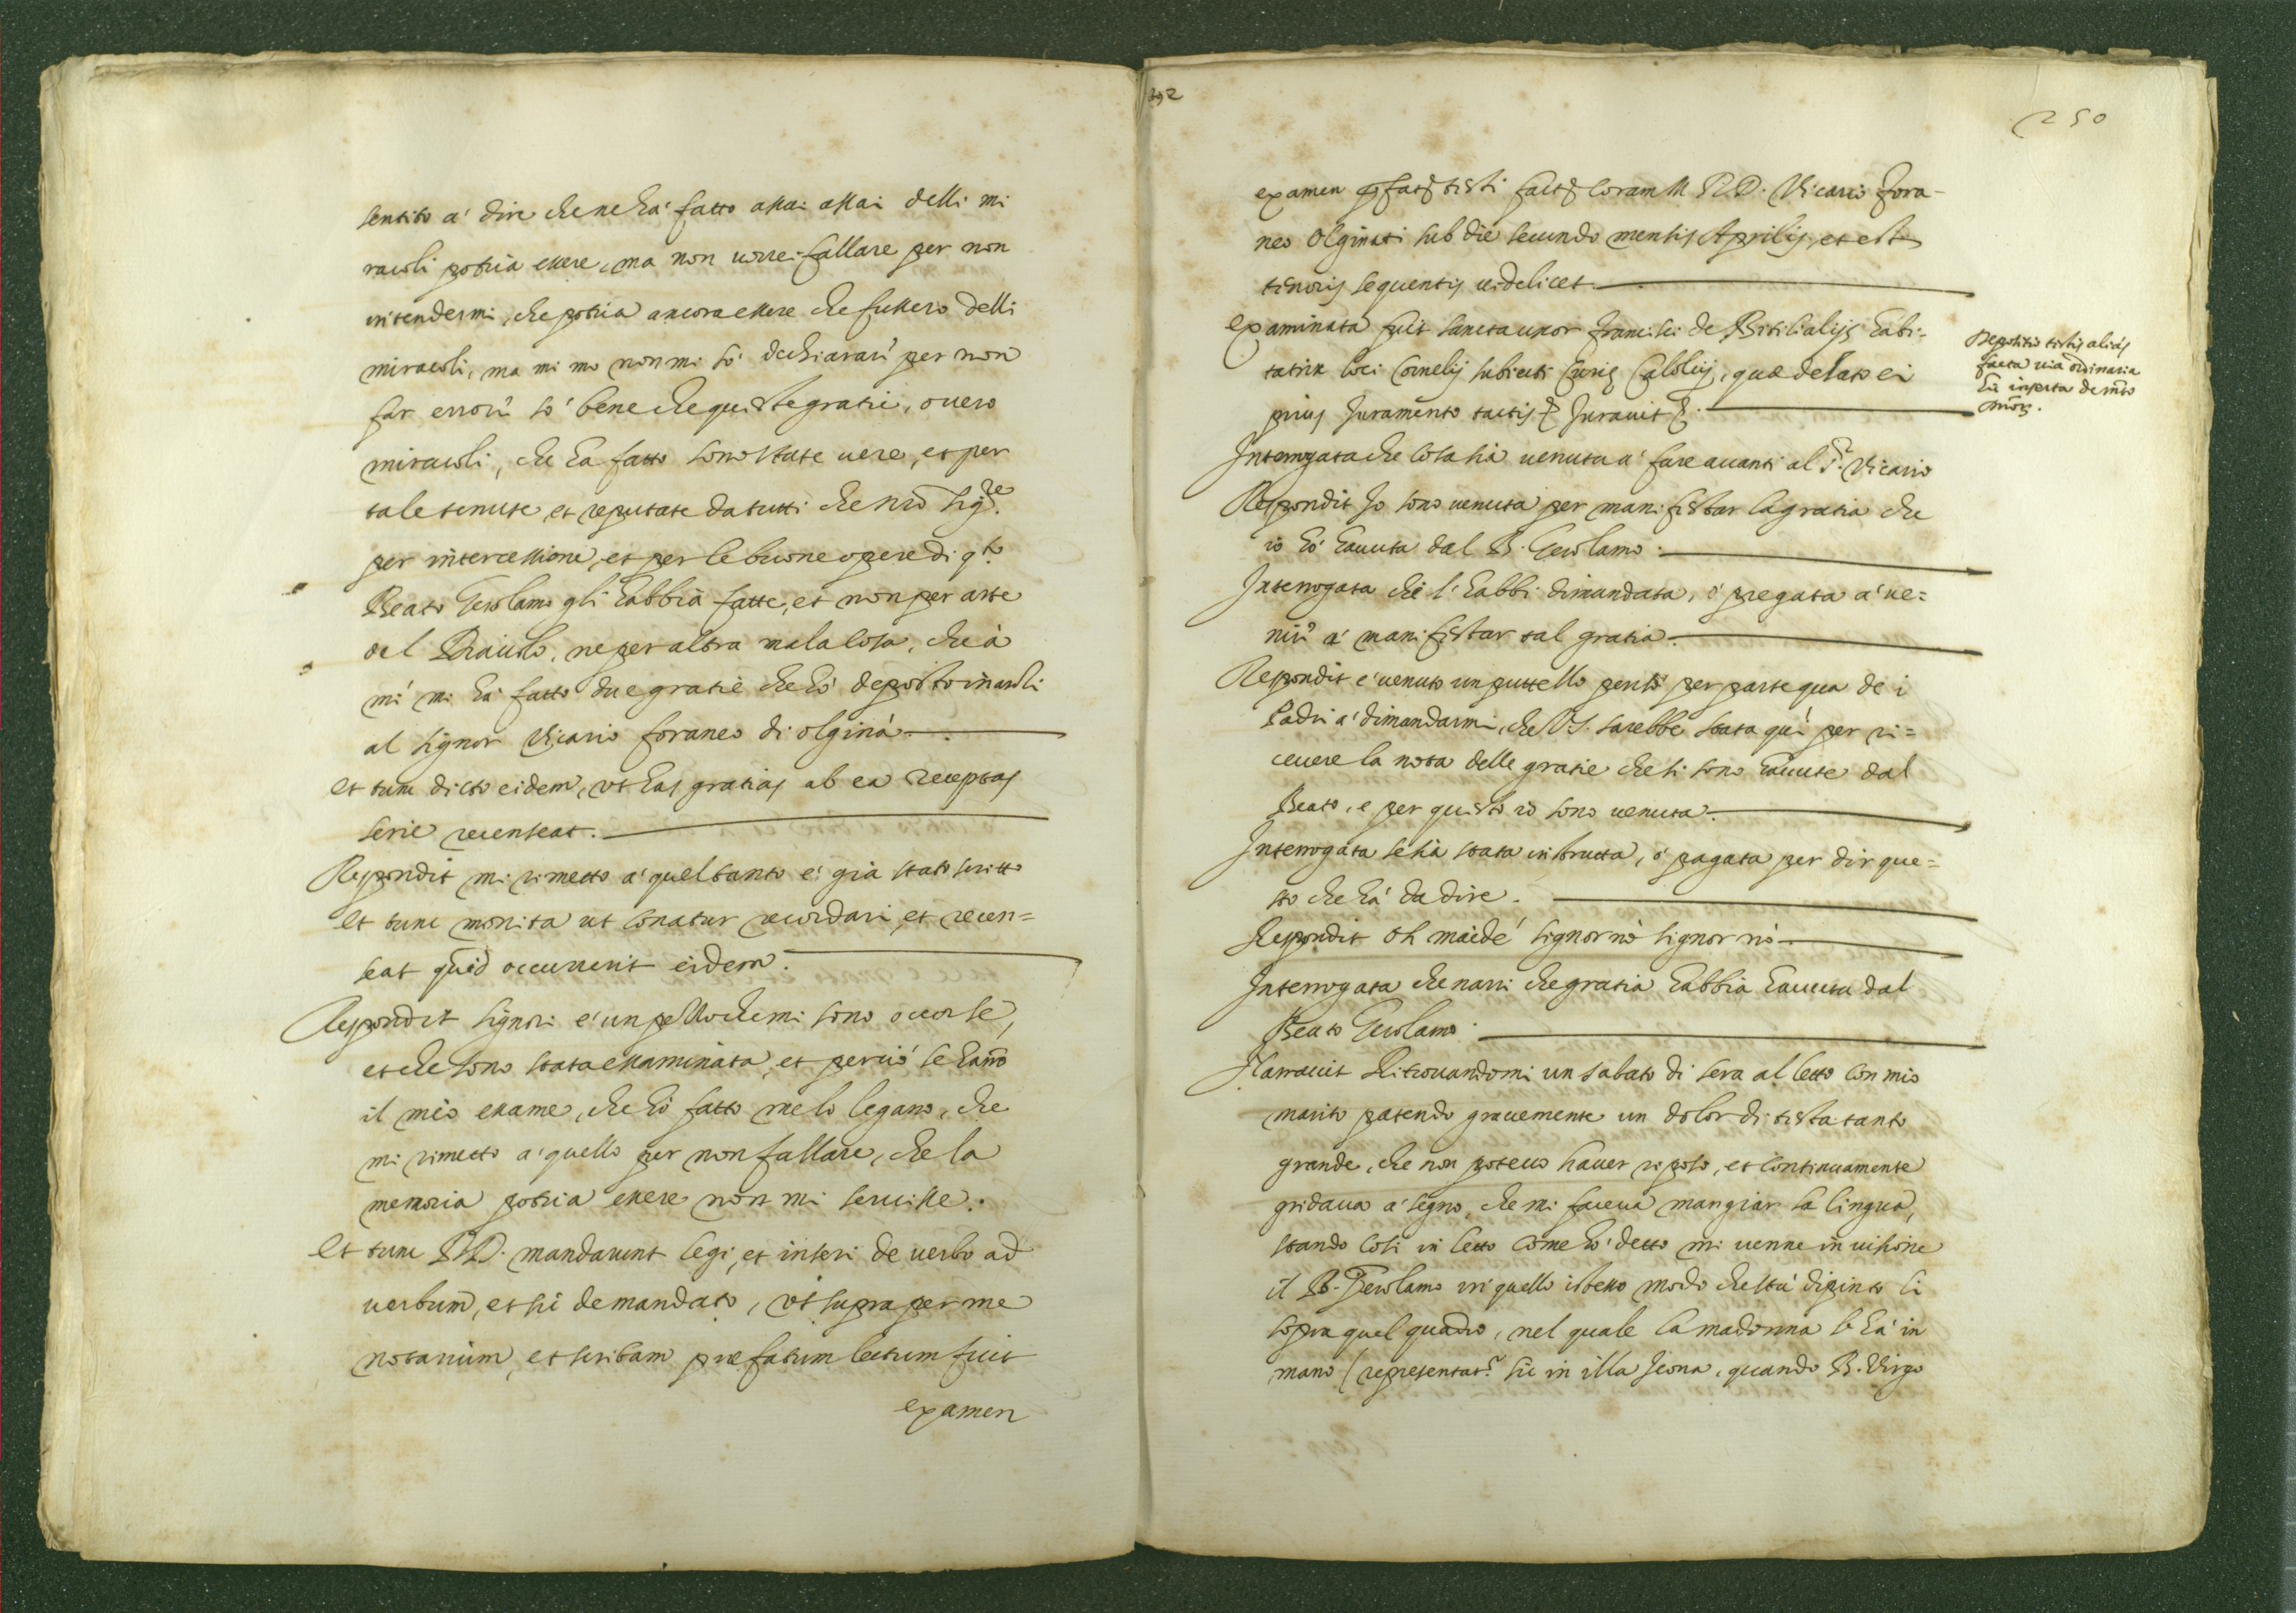 sentito a' dire che ne ha' fatto assai assai delli mi
racoli potria essere, ma non vorrei fallare per non
intendermi, che potria ancora essere che fussero delli
miracoli, ma mi mo non mi so' dechiarari per non
far errori so' bene che queste gratie, overo
miracoli, che ha fatto sono state vere, et per
tale tenute et reputate da tutti che nro sig.re
per intercessione, et per le buone opere di q.to
Beato Gerolamo gli habbia fatte, et non per arte
del Diavolo, ne per altra mala cosa, che à
mi' mi ha' fatto due gratie che ho' deposto inanzi
al signor Vicario foraneo di olginà.
et tunc dicto eidem, ut has gratias ab ea receptas
serie recenseat.
Respondit mi rimetto a' quel tanto e' già stato scritto
et tunc monita ut conatur recordari, et recen=
seat quid occurrerit eidem.
Respondit signori e' un pezzo che mi sono occorse,
et che sono stata essaminata, et perciò se hanno
il mio essame, che hò fatto me lo legano, che
mi rimetto a' quello per non fallare, che la
memoria potria essere non mi servisse.
et tunc DD. mandarunt legi, et inseri de verbo ad
verbum, et sic de mandato, ut supra per me
notarium, et scribam prefatum lectum fuit
examen
392
250
examen tisti coram M. R. D. Vicario fora-
neo Olginati sub die secundo mensis Aprilis, et est
tenoris sequentis videlicet.
Examinata fuit sancta uxor Francisci de habi=
tatrix loci Cornelij subiecti Curie Calolcij, quae delato ei
prius Juramento tactis Juravit
Interrogata che cosa sia venuta a' fare avanti al S.r Vicario
Respondit Jo sono venuta per manifestar la gratia che
io hò havuta dal B. Gerolamo.
Interrogata chi l'habbi dimandata, ò pregata a' ve=
nir' a' manifestar tal gratia.
Respondit e' venuto un puttello per parte qua de i
Padri a' dimandarmi, che V.S. sarebbe stata quì per ri=
cevere la nota delle gratie che si sono havute dal
Beato, e per questo io sono venuta.
Interrogata se sia stata instrutta, ò pagata per dir que=
sto che hà da dire.
Respondit oh maidé signor nò signor nò
Interrogata che narri che gratia habbia havuta dal
Beato Gerolamo.
Narravit Ritrovandomi un sabato di sera al letto con mio
marito patendo gravemente un dolor di testa tanto
grande, che non potevo haver riposo, et continuamente
gridava a' segno, che mi faceva mangiar la lingua,
stando così in letto come ho' detto mi venne in visione
il B. Gerolamo in quello istesso modo che stà dipinto li
sopra quel quadro, nel quale la madonna l'hà in
mano (representat.r sic in illa Jcona, quando B. Virgo
Depositio testis alias
facta via ordinaria
hic inserta de